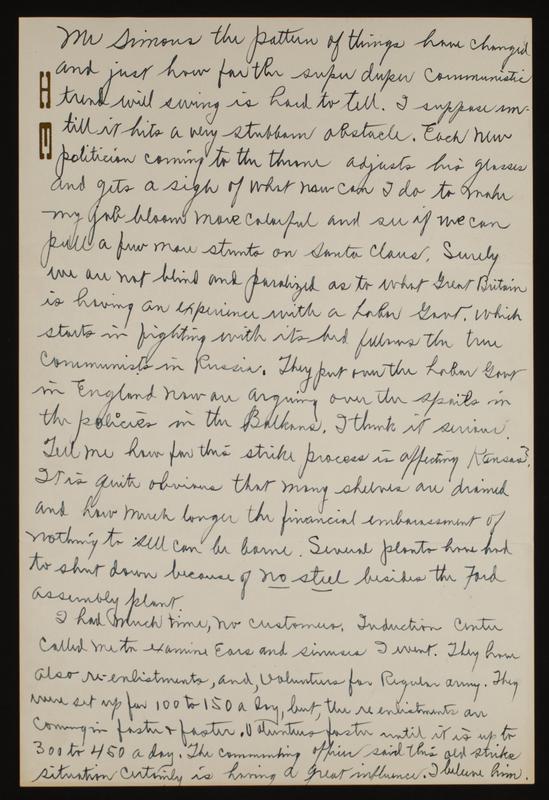 Mr Simons the pattern of things have changed
and just how far the super duper communistic
trend will swing is hard to tell. I suppose un-
till it hits a very stubborn obstacle. Each new
politician coming to the throne adjusts his glasses
and gets a sigh of what now can I do to make
my job bloom more colorful and see if we can
pull a few more stunts on Santa Claus. Surely
we are not blind and paralized as to what Great Britain
is having an experience with a Labor Govt. which
starts in fighting with its bed fellows the true
Communists in Russia. They put over the Labor Govt
in England now are arguing over the spoils in
the policies in the Balkans. I think it serious.
Tell me how far this strike process is affecting Kansas?
It is quite obvious that many shelves are drained
and how much longer the financial embarassment of
nothing to sell can be borne. Several plants have had
to shut down because of no steel besides the Ford
assembly plant.
I had much time, no customers. Induction Center
called me to examine Ears and sinuses I went. They have
also re-enlistments, and, volunteers for Regular army. They
were set up for 100 to 150 a day, but, the re enlistments are
coming in faster & faster. Volunteers faster until it is up to
300 to 450 a day. The commanting officer said this old strike
situation certainly is having a great influence. I believe him.
H
M